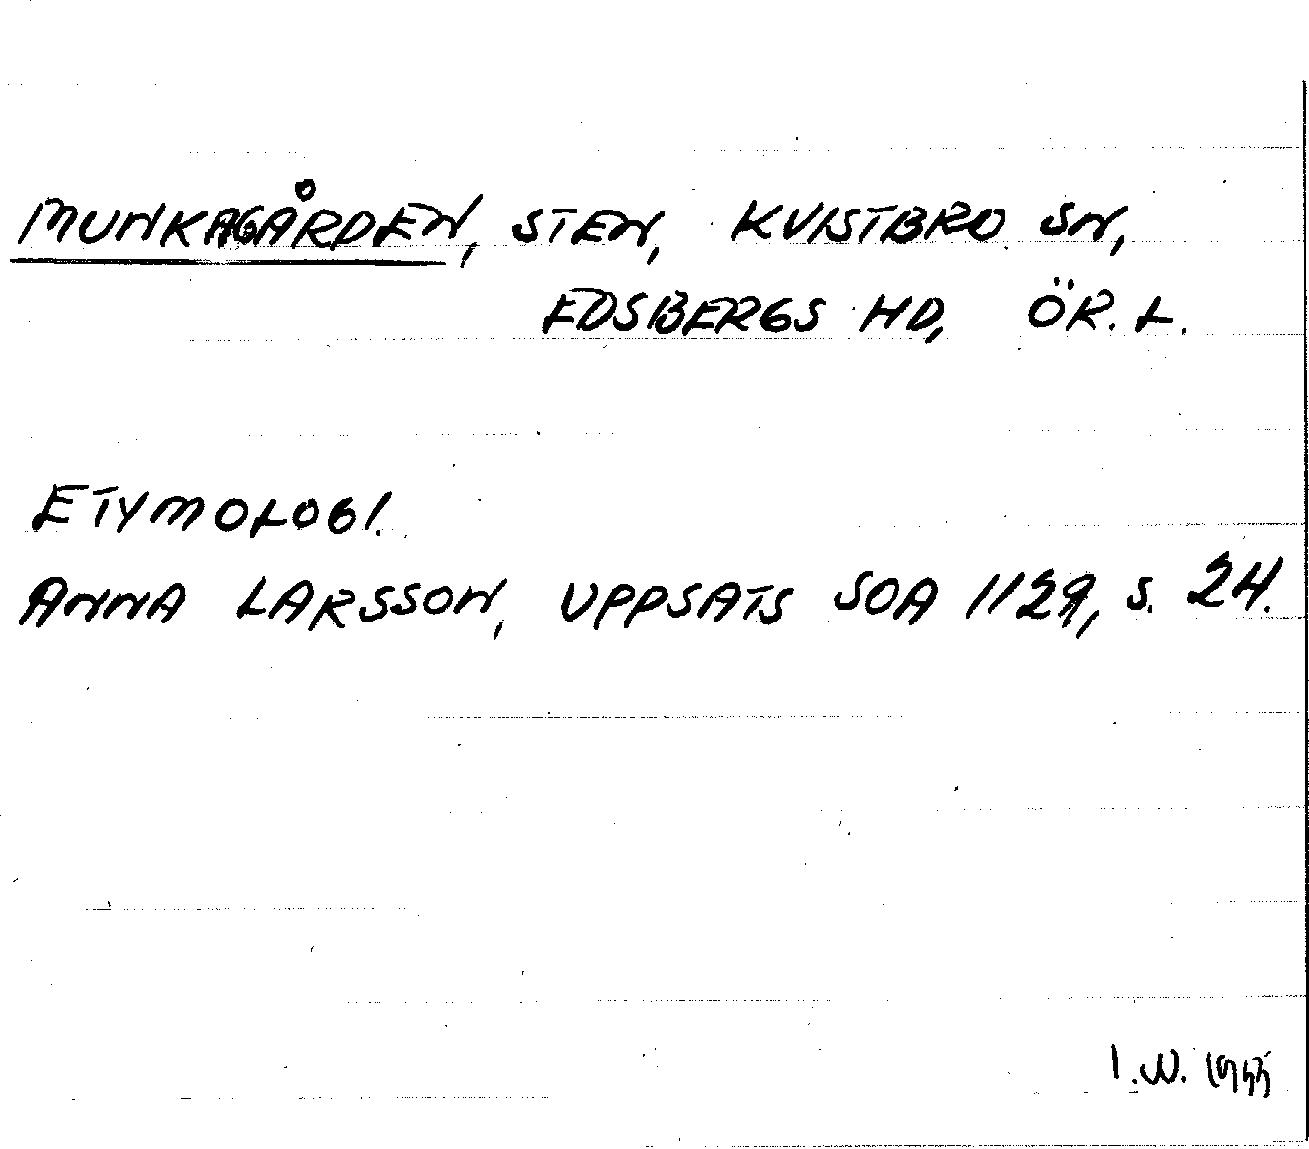 MUNKAGÅRDEN, STEN, KVISTBRO SN,
EDSBERGS HD, ÖR. L.
ETYMOLOGI.
ANNA LARSSON, UPPSATS SOA 1129, S. 24.
I.W.